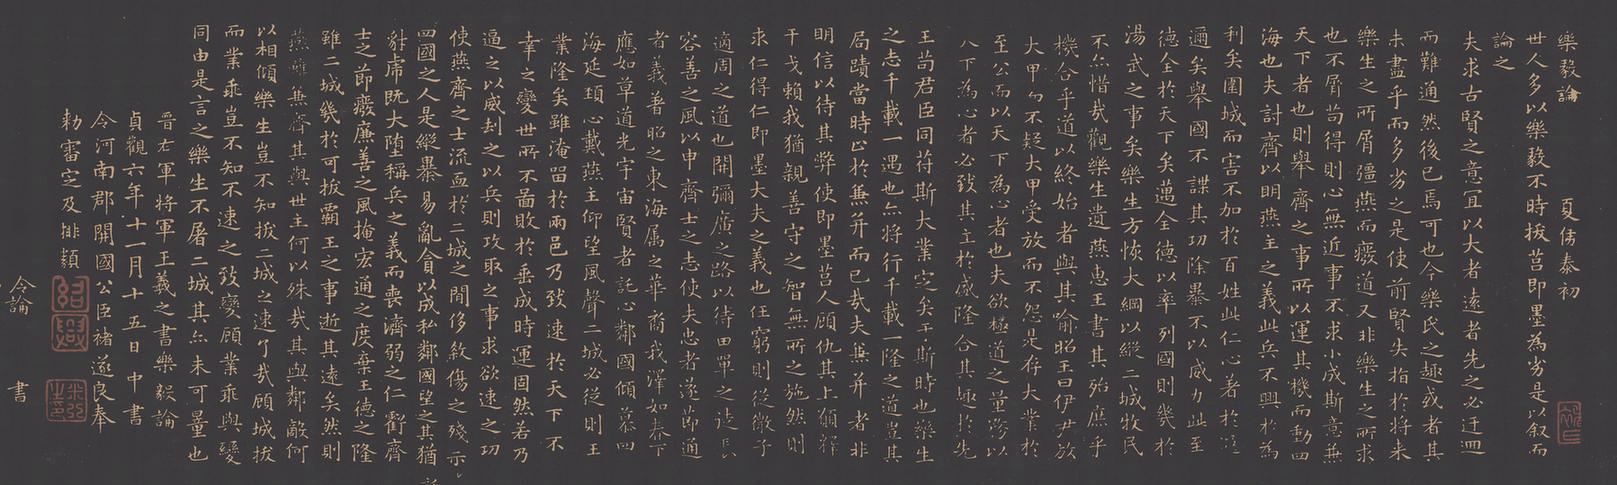 樂毅論 夏侯泰初
世人多以樂毅不時拔莒即墨為劣是以叙而
論之
夫求古賢之意宜以大者遠者先之必迂迴
而難通然後已焉可也今樂氏之趣或者其
未盡乎而多劣之是使前賢失指於將来
樂生之所屑彊燕而廢道又非樂生之所求
也不屑苟得則心無近事不求小成斯意無
天下者也則舉齊之事所以運其機而動四
海也夫討齊以明燕主之義此兵不興於為
利矣圍城而害不加於百姓此仁心著於
邇矣舉國不謀其功除暴不以威力此至
德全於天下矣邁全德以率列國則幾於
湯武之事矣樂生方恢大綱以縱二城牧民
不
觀樂生遺燕惠王書其殆庶乎
機合乎道以終始者與其喻昭王曰伊尹放
大甲而不疑大甲受放而不怨是存大業於
至公而以天下為心者也夫欲極道之量務以
天下為心者必致其主於盛隆合其趣於先
王苟君臣同苻斯大業定矣于斯時也樂生
之志千載一遇也亦將行千載一隆之道豈其
局蹟當時止於兼并而已哉夫兼并者非
明信以待其弊使即墨莒人顧仇其上願釋
干戈賴我猶親善守之智無所之施然則
求仁得仁即墨大夫之義也任窮則從微子
適周之道也開彌廣之路以待田單之徒長
容善之風以申齊士之志使夫忠者遂節通
者義著昭之東海屬之華裔我澤如春下
應如草道光宇宙賢者託心鄰國傾慕四
海延頚心戴燕主仰望風聲二城必從則王
業隆矣雖淹留於兩邑乃致速於天下不
幸之變世所不啚敗於垂成時運固然若乃
逼之以威刦之以兵則攻取之事求欲速之功
使燕齊之士流血於二城之間侈敘傷之殘示
四國之人是縱暴易亂貪以成私鄰國望之其猶
豺虎既大堕稱兵之義而喪濟弱之仁虧齊
士之節廢廉善之風掩宏通之度棄王德之隆
雖二城幾於可拔霸王之事逝其遠矣然則
燕雖兼齊其與世主何以殊哉其與鄰敵何
以相傾樂生豈不知拔二城之速了哉顧城拔
而業乖豈不知不速之致變顧業乖與變
同由是言之樂生不屠二城其亦未可量也
晉右軍將軍王羲之書樂毅論
貞觀六年十一月十五日中書
令河南郡開國公臣禇遂良奉
勑審定及排類
令論
書